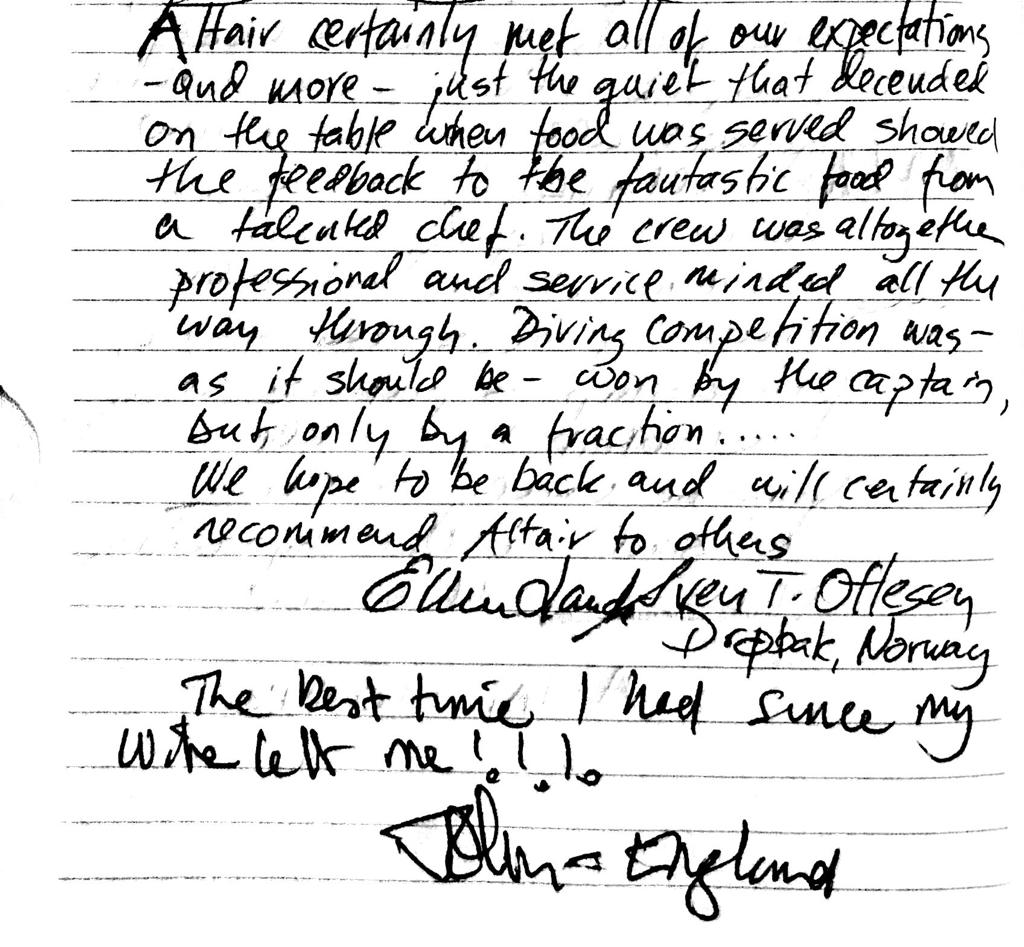 Altair certainly met all of our expectations
- and more - just the quiet that decended
on the table when food was served showed
the feedback to the fantastic food from
a talented chef. The crew was altogether
professional and service minded all the
way through. Diving competition was -
as it should be - won by the captain,
but only by a fraction.....
We hope to be back and will certainly
recommend Altair to others
Ellen Sven T. Oftesen
Drøbak, Norway
The best time I had since my
wife left me!!!
John - England